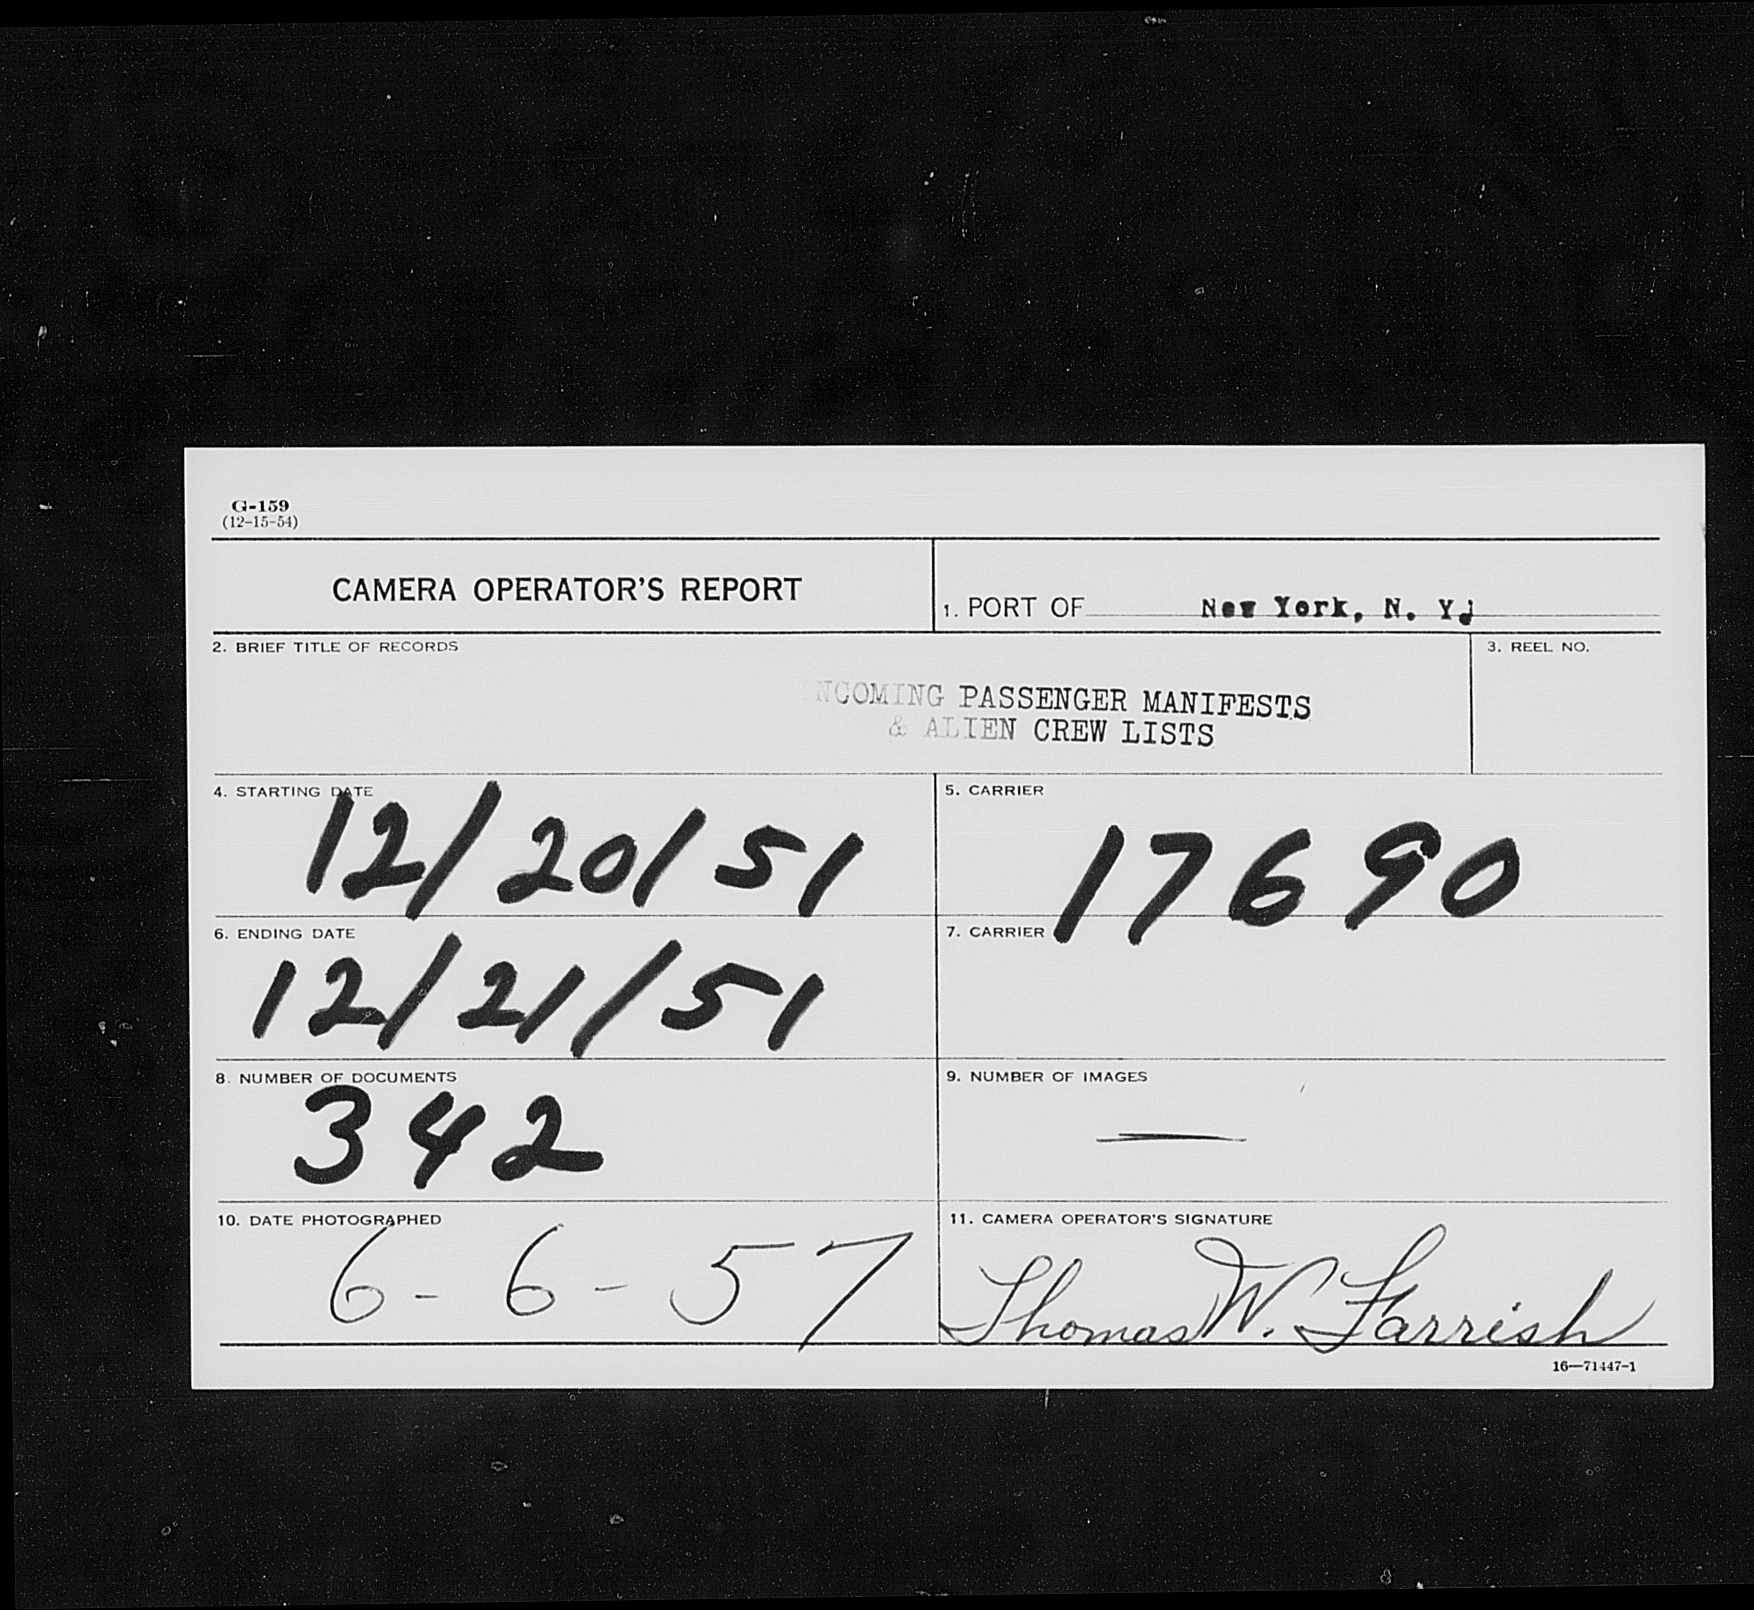 G-159
(12-15-54)
CAMERA OPERATOR'S REPORT
1. PORT OF New York, N. Y.
2. BRIEF TITLE OF RECORDS
3. REEL NO.
INCOMING PASSENGER MANIFESTS
& ALIEN CREW LISTS
4. STARTING DATE
12/20/51
5. CARRIER
17690
6. ENDING DATE
12/21/51
7. CARRIER
8. NUMBER OF DOCUMENTS
342
9. NUMBER OF IMAGES
—
10. DATE PHOTOGRAPHED
6-6-57
11. CAMERA OPERATOR'S SIGNATURE
Thomas W. Farrish
16—71447-1